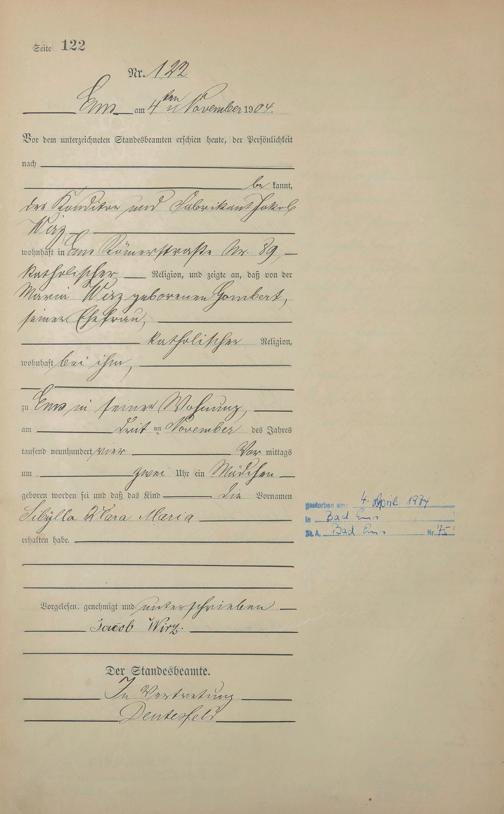 Seite 122
Nr. 122
Ems am 4ten November 1904.
Vor dem unterzeichneten Standesbeamten erschien heute, der Persönlichkeit
nach
be kannt,
der Konditor und Fabrikant Jakob
Wirz,
wohnhaft in Ems Römerstraße Nr. 89,
katholischer Religion, und zeigte an, daß von der
Maria Wirz geborenen Gombert,
seiner Ehefrau,
katholischer Religion,
wohnhaft bei ihm,
zu Ems in seiner Wohnung,
am November des Jahres
tausend neunhundert vier Vor mittags
um zwei Uhr ein Mädchen
geboren worden sei und daß das Kind die Vornamen
Sibylla Klara Maria
erhalten habe.
gestorben am: 4. April 1974
in Bad Ems
St. A. Bad Ems Nr. 75
Vorgelesen, genehmigt und unterschrieben
Jacob Wirz.
Der Standesbeamte.
In Vertretung